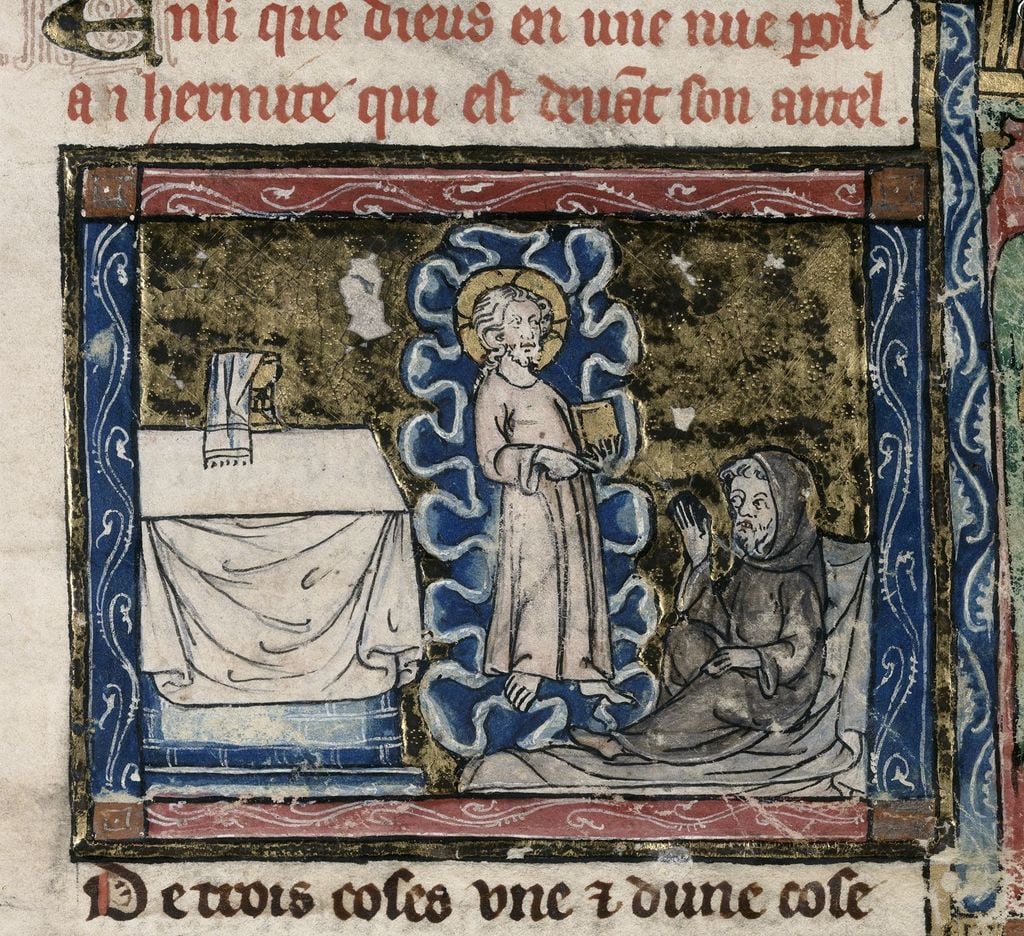 Ensi que dieus en une nue pole
a .i. hermite qui est devāt son autel .
De trois coses vne ⁊ dune cose